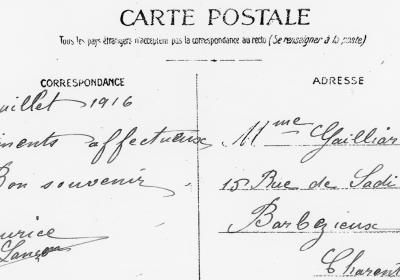 CARTE POSTALE
Tous les pays étrangers n'acceptent pas la correspondance au recto (Se renseigner à la poste)
CORRESPONDANCE
ADRESSE
uillet 1916
iments affectueux
Bon souvenir
urice
Mme Gailliar
15 Rue de Sadi
Barbezieux
Charent